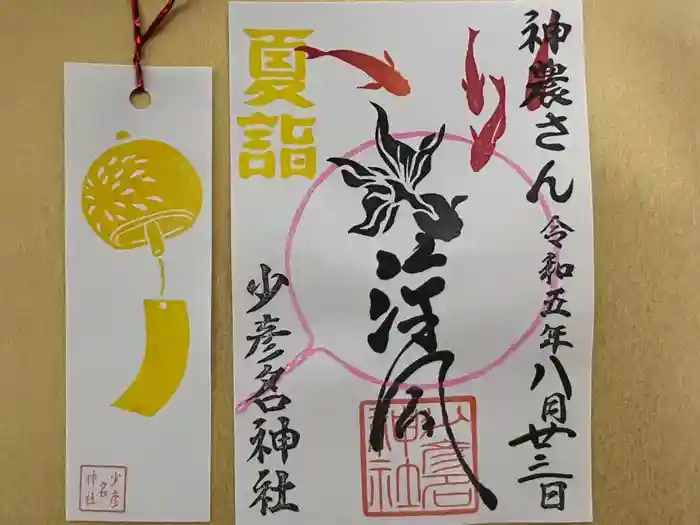 神農さん 令和五年八月廿三日
夏詣
少彦名神社
少彦名神社
少彦名神社